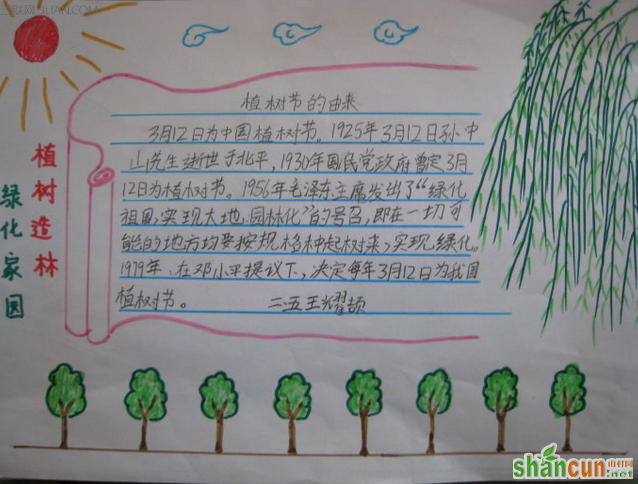 植树节的由来
3月12日为中国植树节。1925年3月12日孙中
山先生逝世于北平,1930年国民党政府暂定3月
12日为植树节。1956年毛泽东主席发出了“绿化
祖国,实现大地园林化”的号召,即在一切可
能的地方均要按规格种起树来,实现绿化。
1979年,在邓小平提议下,决定每年3月12日为我国
植树节。 二五王耀
植树造林
绿化家园
shancun
.net